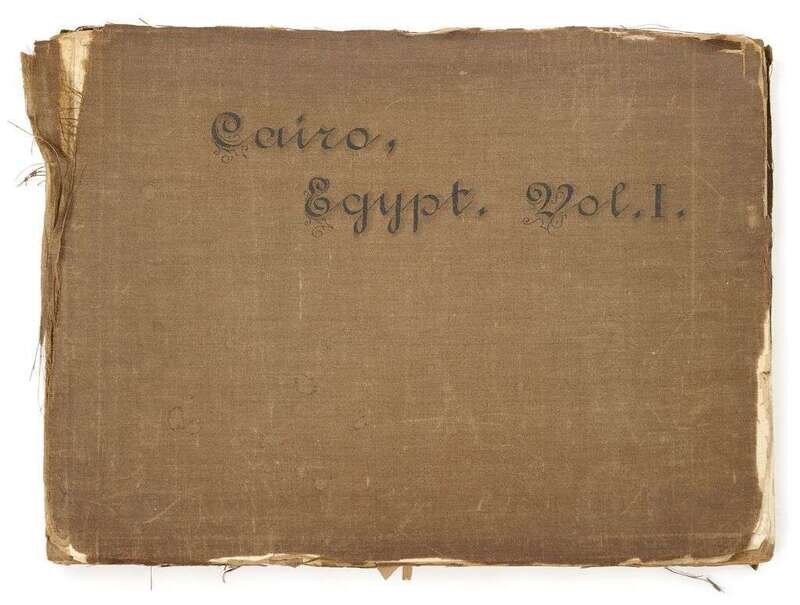 Cairo,
Egypt. Vol.I.